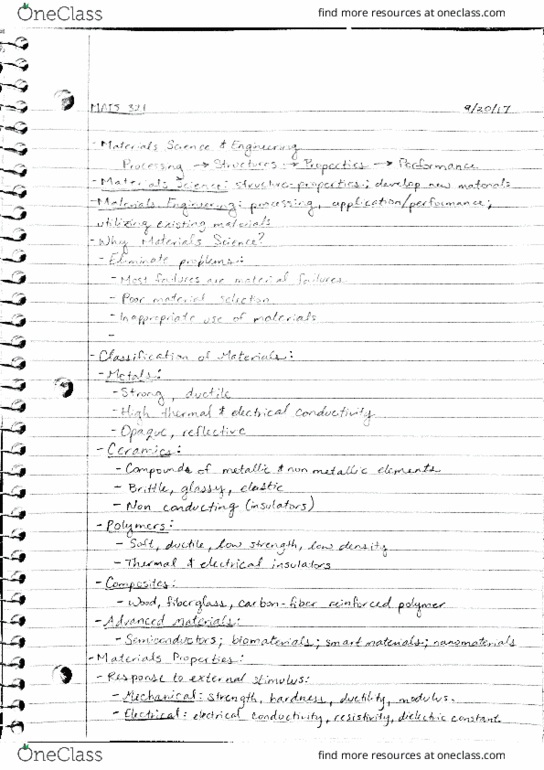 OneClass
find more resources at oneclass.com
MATS 321
9/20/17
- Materials Science & Engineering
Processing → Structures → Properties → Performance
- Materials Science: structure-properties; develop new materials
Materials Engineering: processing, application/performance;
utilizing existing materials
- Why Materials Science?
- Eliminate problems:
- Most failures are material failures
- Poor material selection
- Inappropriate use of materials
-
- Classification of Materials:
- Metals:
- Strong, ductile
- High thermal & electrical conductivity
- Opaque, reflective
- Ceramics:
- Compounds of metallic & non metallic elements
- Brittle, glassy, elastic
- Non conducting (insulators)
- Polymers:
- Soft, ductile, low strength, low density
- Thermal & electrical insulators
- Composites:
- Wood, fiberglass, carbon-fiber reinforced polymer
- Advanced Materials:
- Semiconductors; biomaterials; smart materials; nanomaterials
- Materials Properties:
- Response to external stimulus:
- Mechanical: strength, hardness, ductility, modulus.
- Electrical: electrical conductivity, resistivity, dielectric constant
OneClass
find more resources at oneclass.com